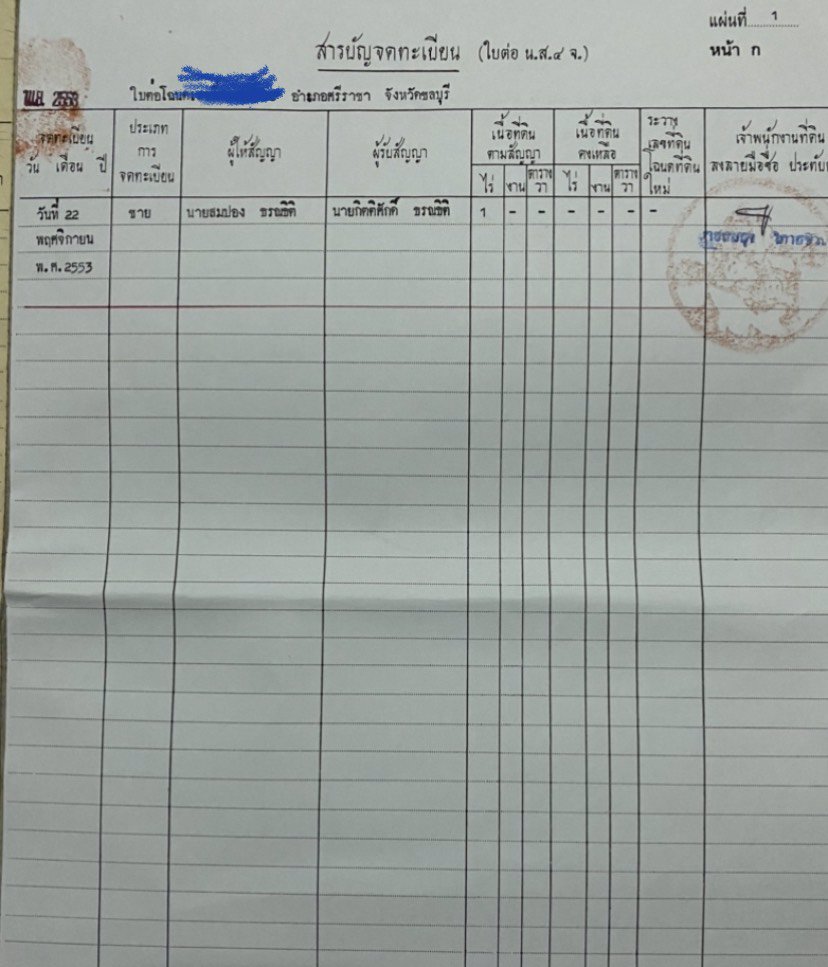 แผ่นที่ 1
สารบัญจดทะเบียน (ใบต่อ น.ส.๔ จ.)
หน้า ก
พ.ศ. 2553
ใบต่อโฉนด อำเภอศรีราชา จังหวัดชลบุรี
จดทะเบียน
วัน เดือน ปี
ประเภท
การ
จดทะเบียน
ผู้ให้สัญญา
ผู้รับสัญญา
เนื้อที่ดิน
ตามสัญญา
ไร่ งาน ตาราง
วา
เนื้อที่ดิน
คงเหลือ
ไร่ งาน ตาราง
วา
ระวาง
เลขที่ดิน
โฉนดที่ดิน
ใหม่
เจ้าพนักงานที่ดิน
ลงลายมือชื่อ ประทับ
วันที่ 22 ขาย นายสมปอง ขรณธิติ นายกิตติศักดิ์ ขรณธิติ 1 - - - - - -
พฤศจิกายน
พ.ศ.2553